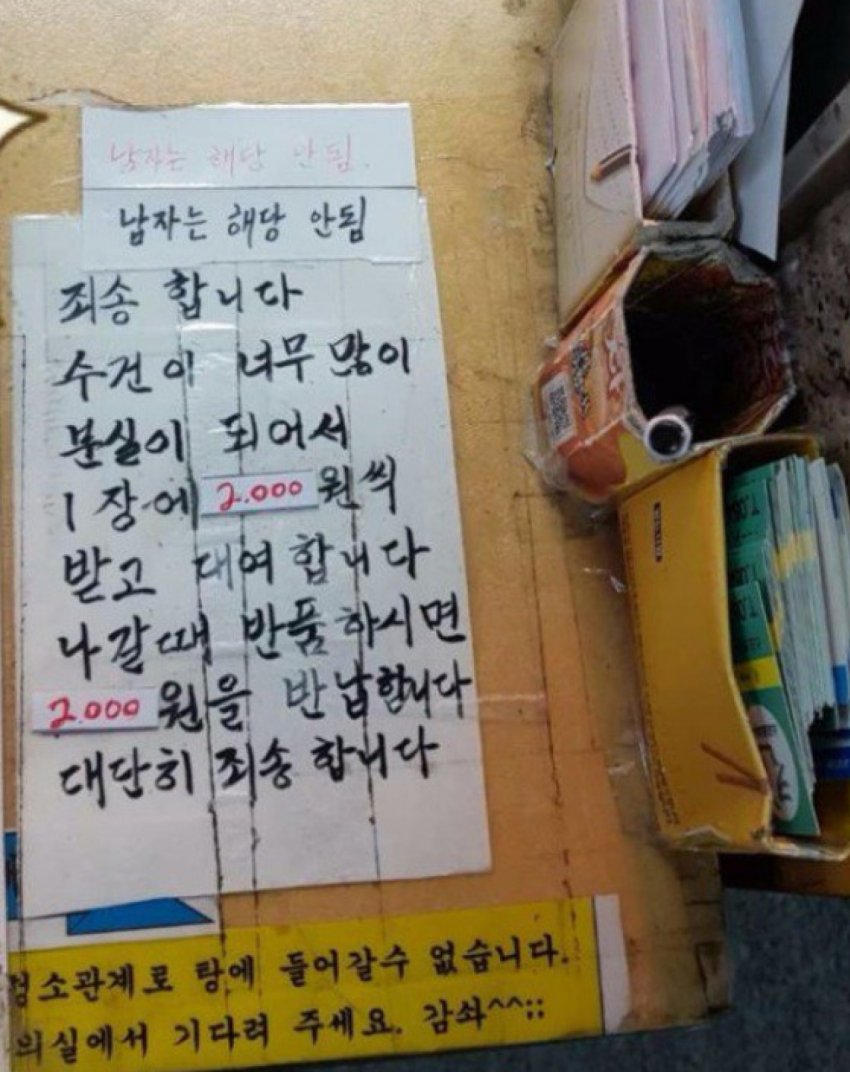 남자는 해당 안됨.
남자는 해당 안됨
죄송 합니다
수건이 너무 많이
분실이 되어서
1장에 2.000원씩
받고 대여 합니다
나갈때 반품하시면
2.000원을 반납합니다
대단히 죄송 합니다
청소관계로 탕에 들어갈수 없습니다.
의실에서 기다려 주세요. 감솨^^;;